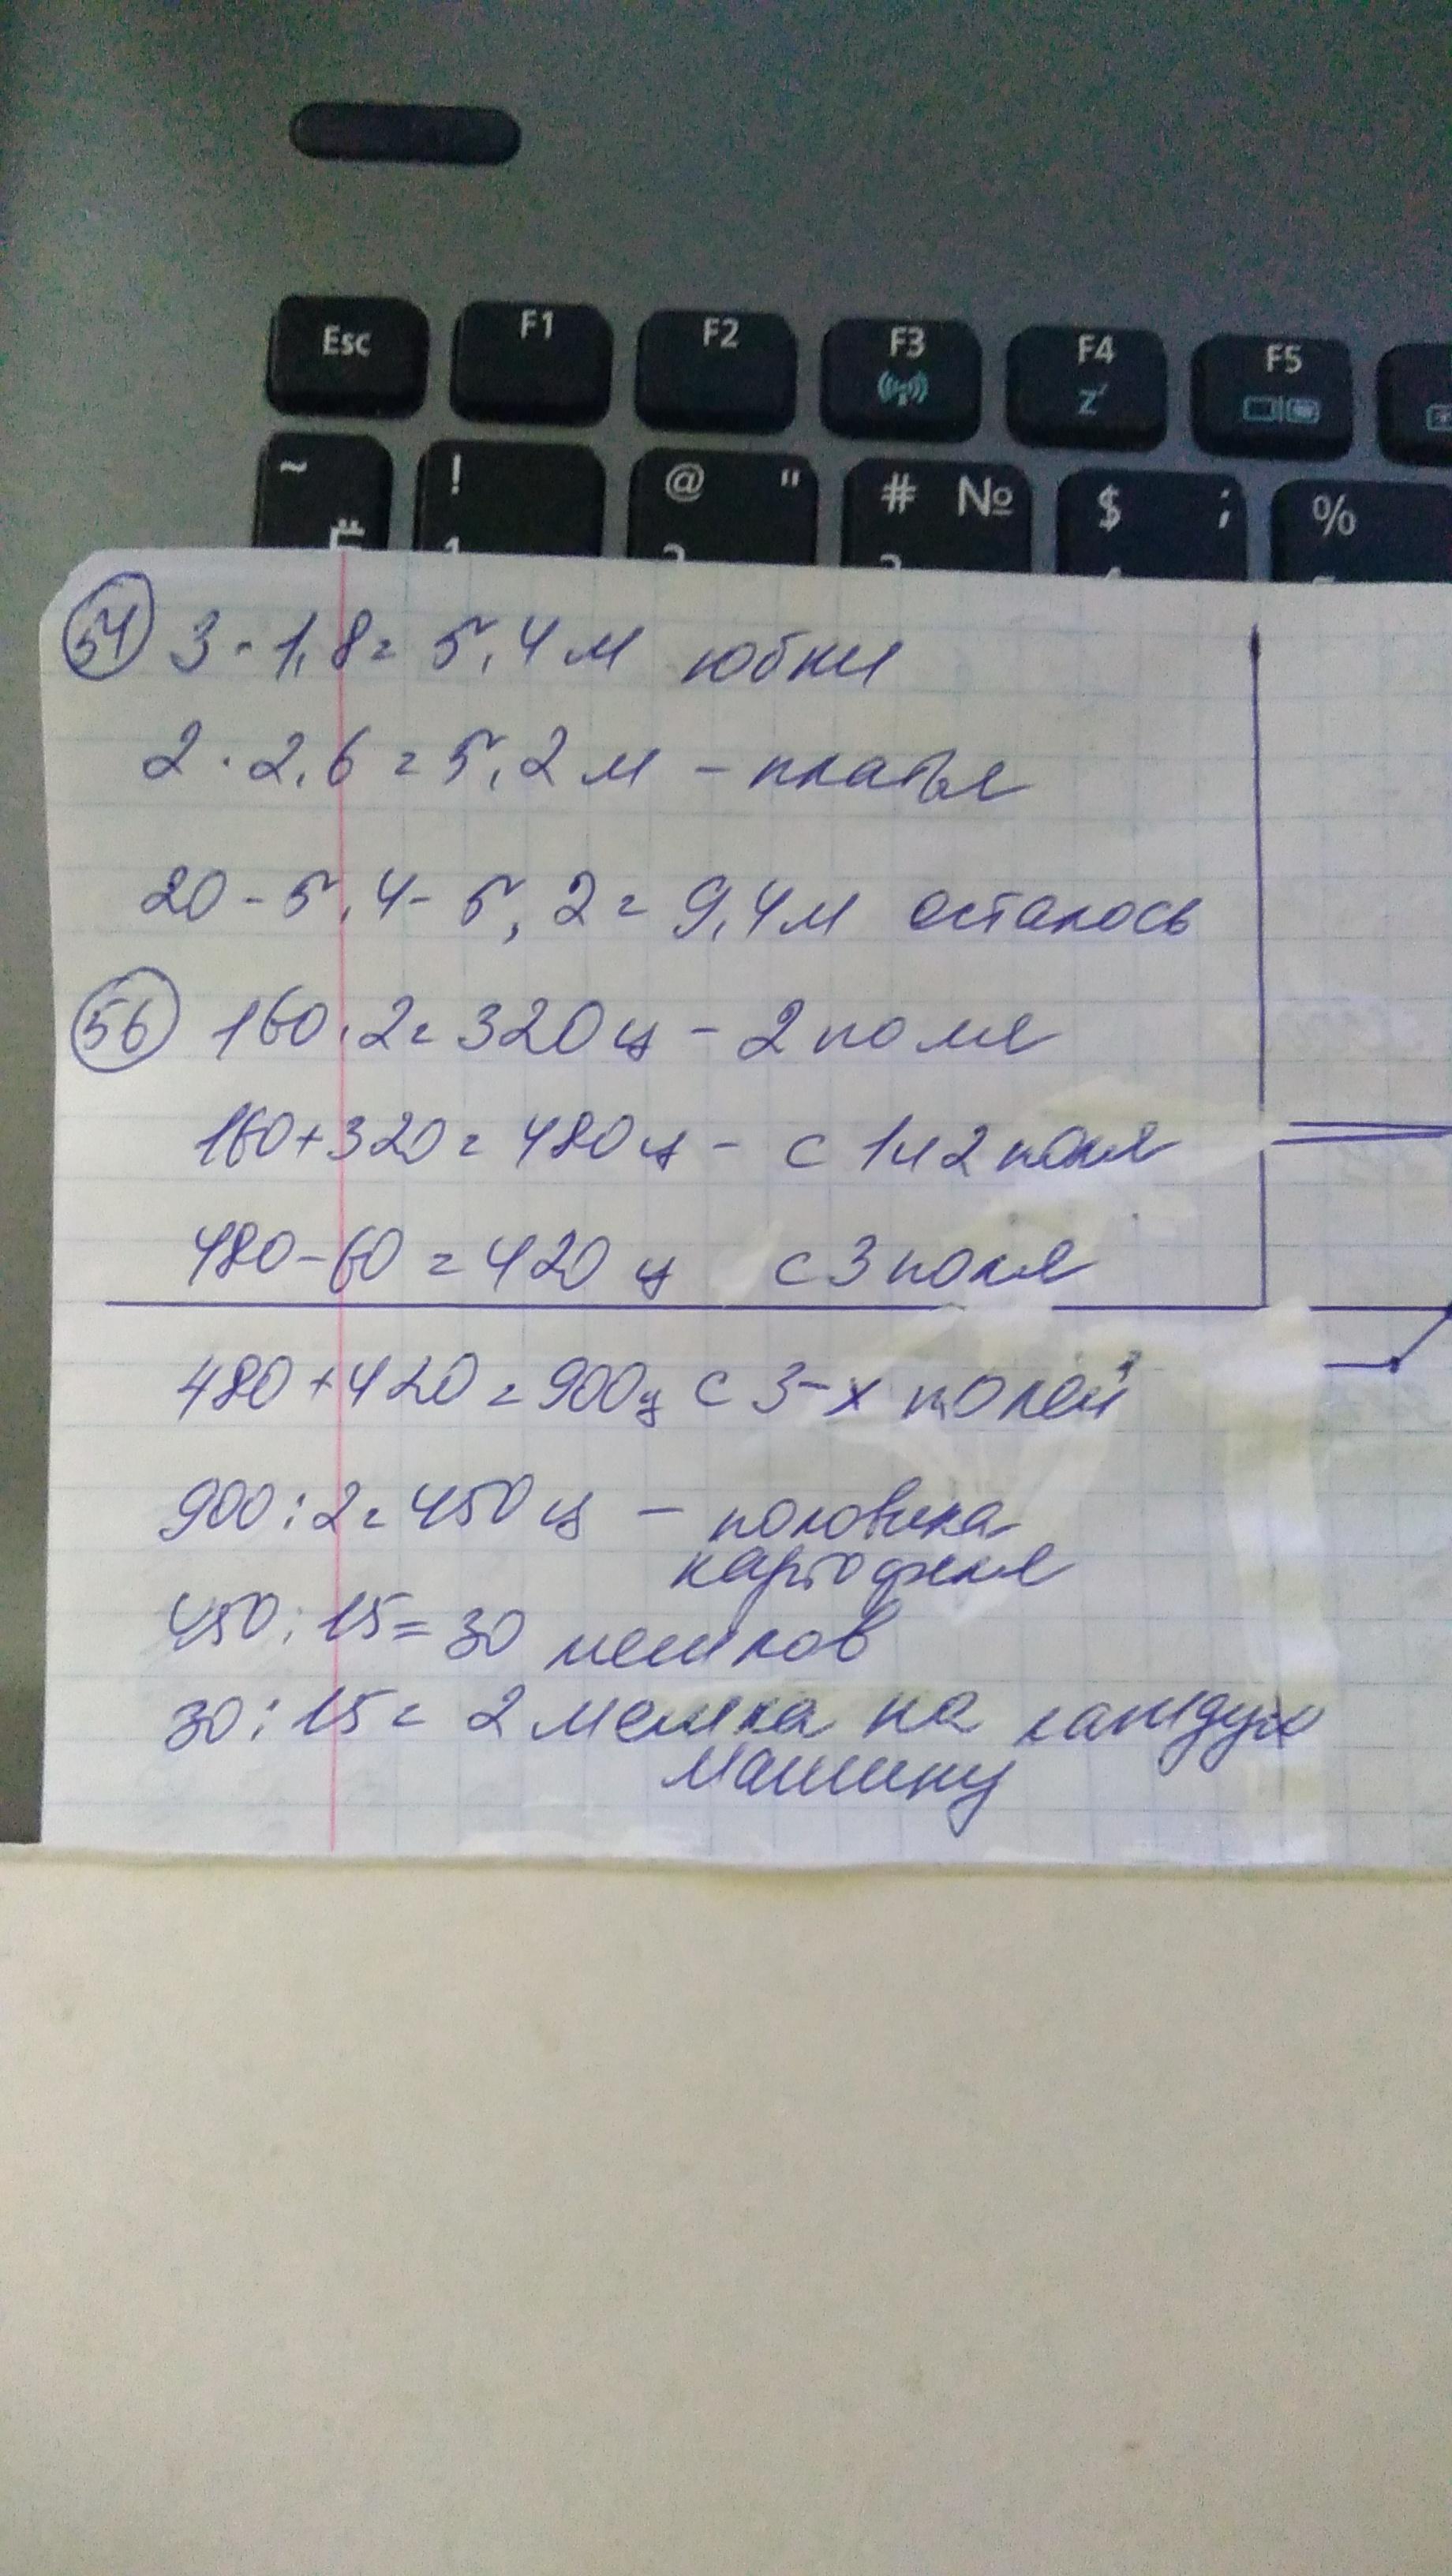 Esc F1 F2 F3 F4 F5
z
~ ! @ " # № $ ; %
Ё 1
54 3 · 1,8 = 5,4 м юбки
2 · 2,6 = 5,2 м - платья
20 - 5,4 - 5,2 = 9,4 м осталось
56 160 · 2 = 320 ц - 2 поля
160 + 320 = 480 ц - с 1 и 2 поля
480 - 60 = 420 ц с 3 поля
480 + 420 = 900 ц с 3-х полей
900 : 2 = 450 ц - половина
картофеля
450 : 15 = 30 мешков
30 : 15 = 2 мешка на каждую
машину